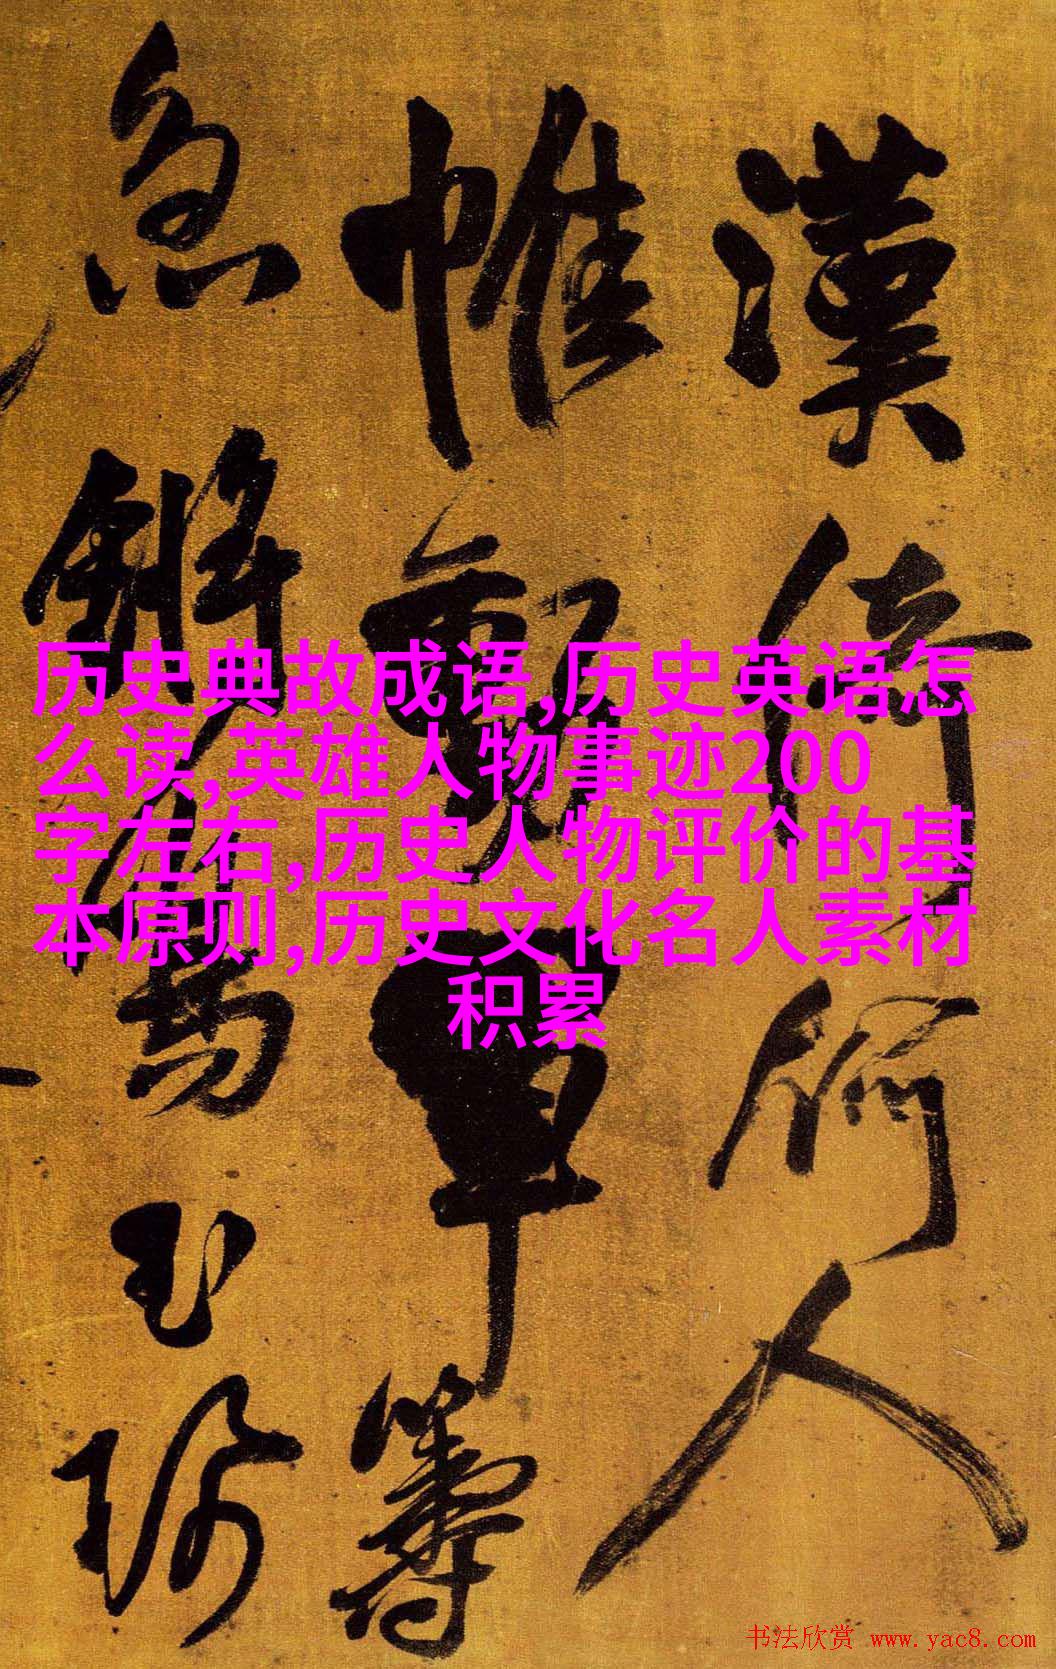 历史典故成语,历史英语怎
么读,英雄人物事迹200
字左右,历史人物评价的基
本原则,历史文化名人素材
积累
漢倚何人
帷軍籌
急玉
书法欣赏 www.yac8.com